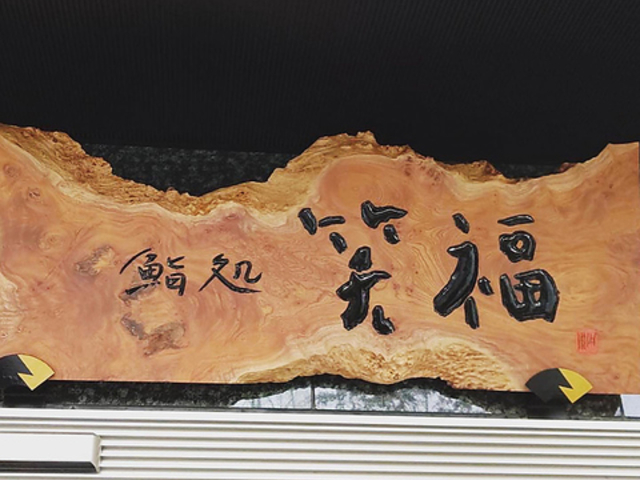 鮨処 笑福